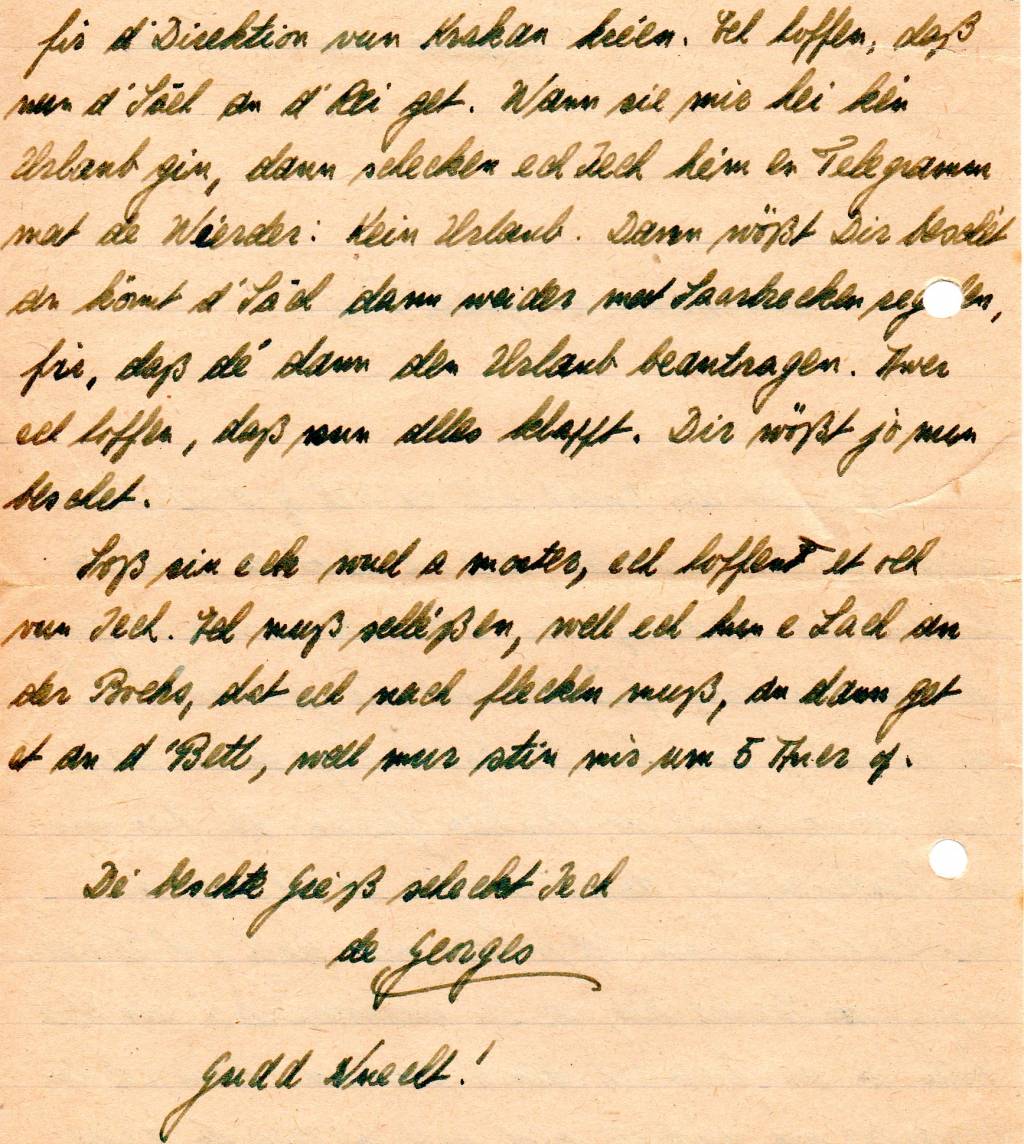 fir d'Direktion vun Krakau heien. Ech hoffen, daß
nun d'Säch an d'Rei get. Wann sie mir hei ken
Urlaub gin, dann schecken ech Iech heim en Telegramm
mat de Wierder: Kein Urlaub. Dann wößt Dir beschét
an kömt d'Säch dann weider mat Saarbrecken regelen,
fir, daß dé dann den Urlaub beantragen. Awer
ech hoffen, daß nun alles klappt. Dir wößt jo nun
beschet.
Soß sin ech nach a monter, ech hoffen et och
vun Iech. Ech muß schléßen, well ech hun e Lach an
der Bochs, dat ech nach flecken muß, an dann get
et an d'Bett, well mur stin mir um 5 Auer op.
Dé beschte Gréß scheckt Iech
de Georges
Gudd Nuecht!